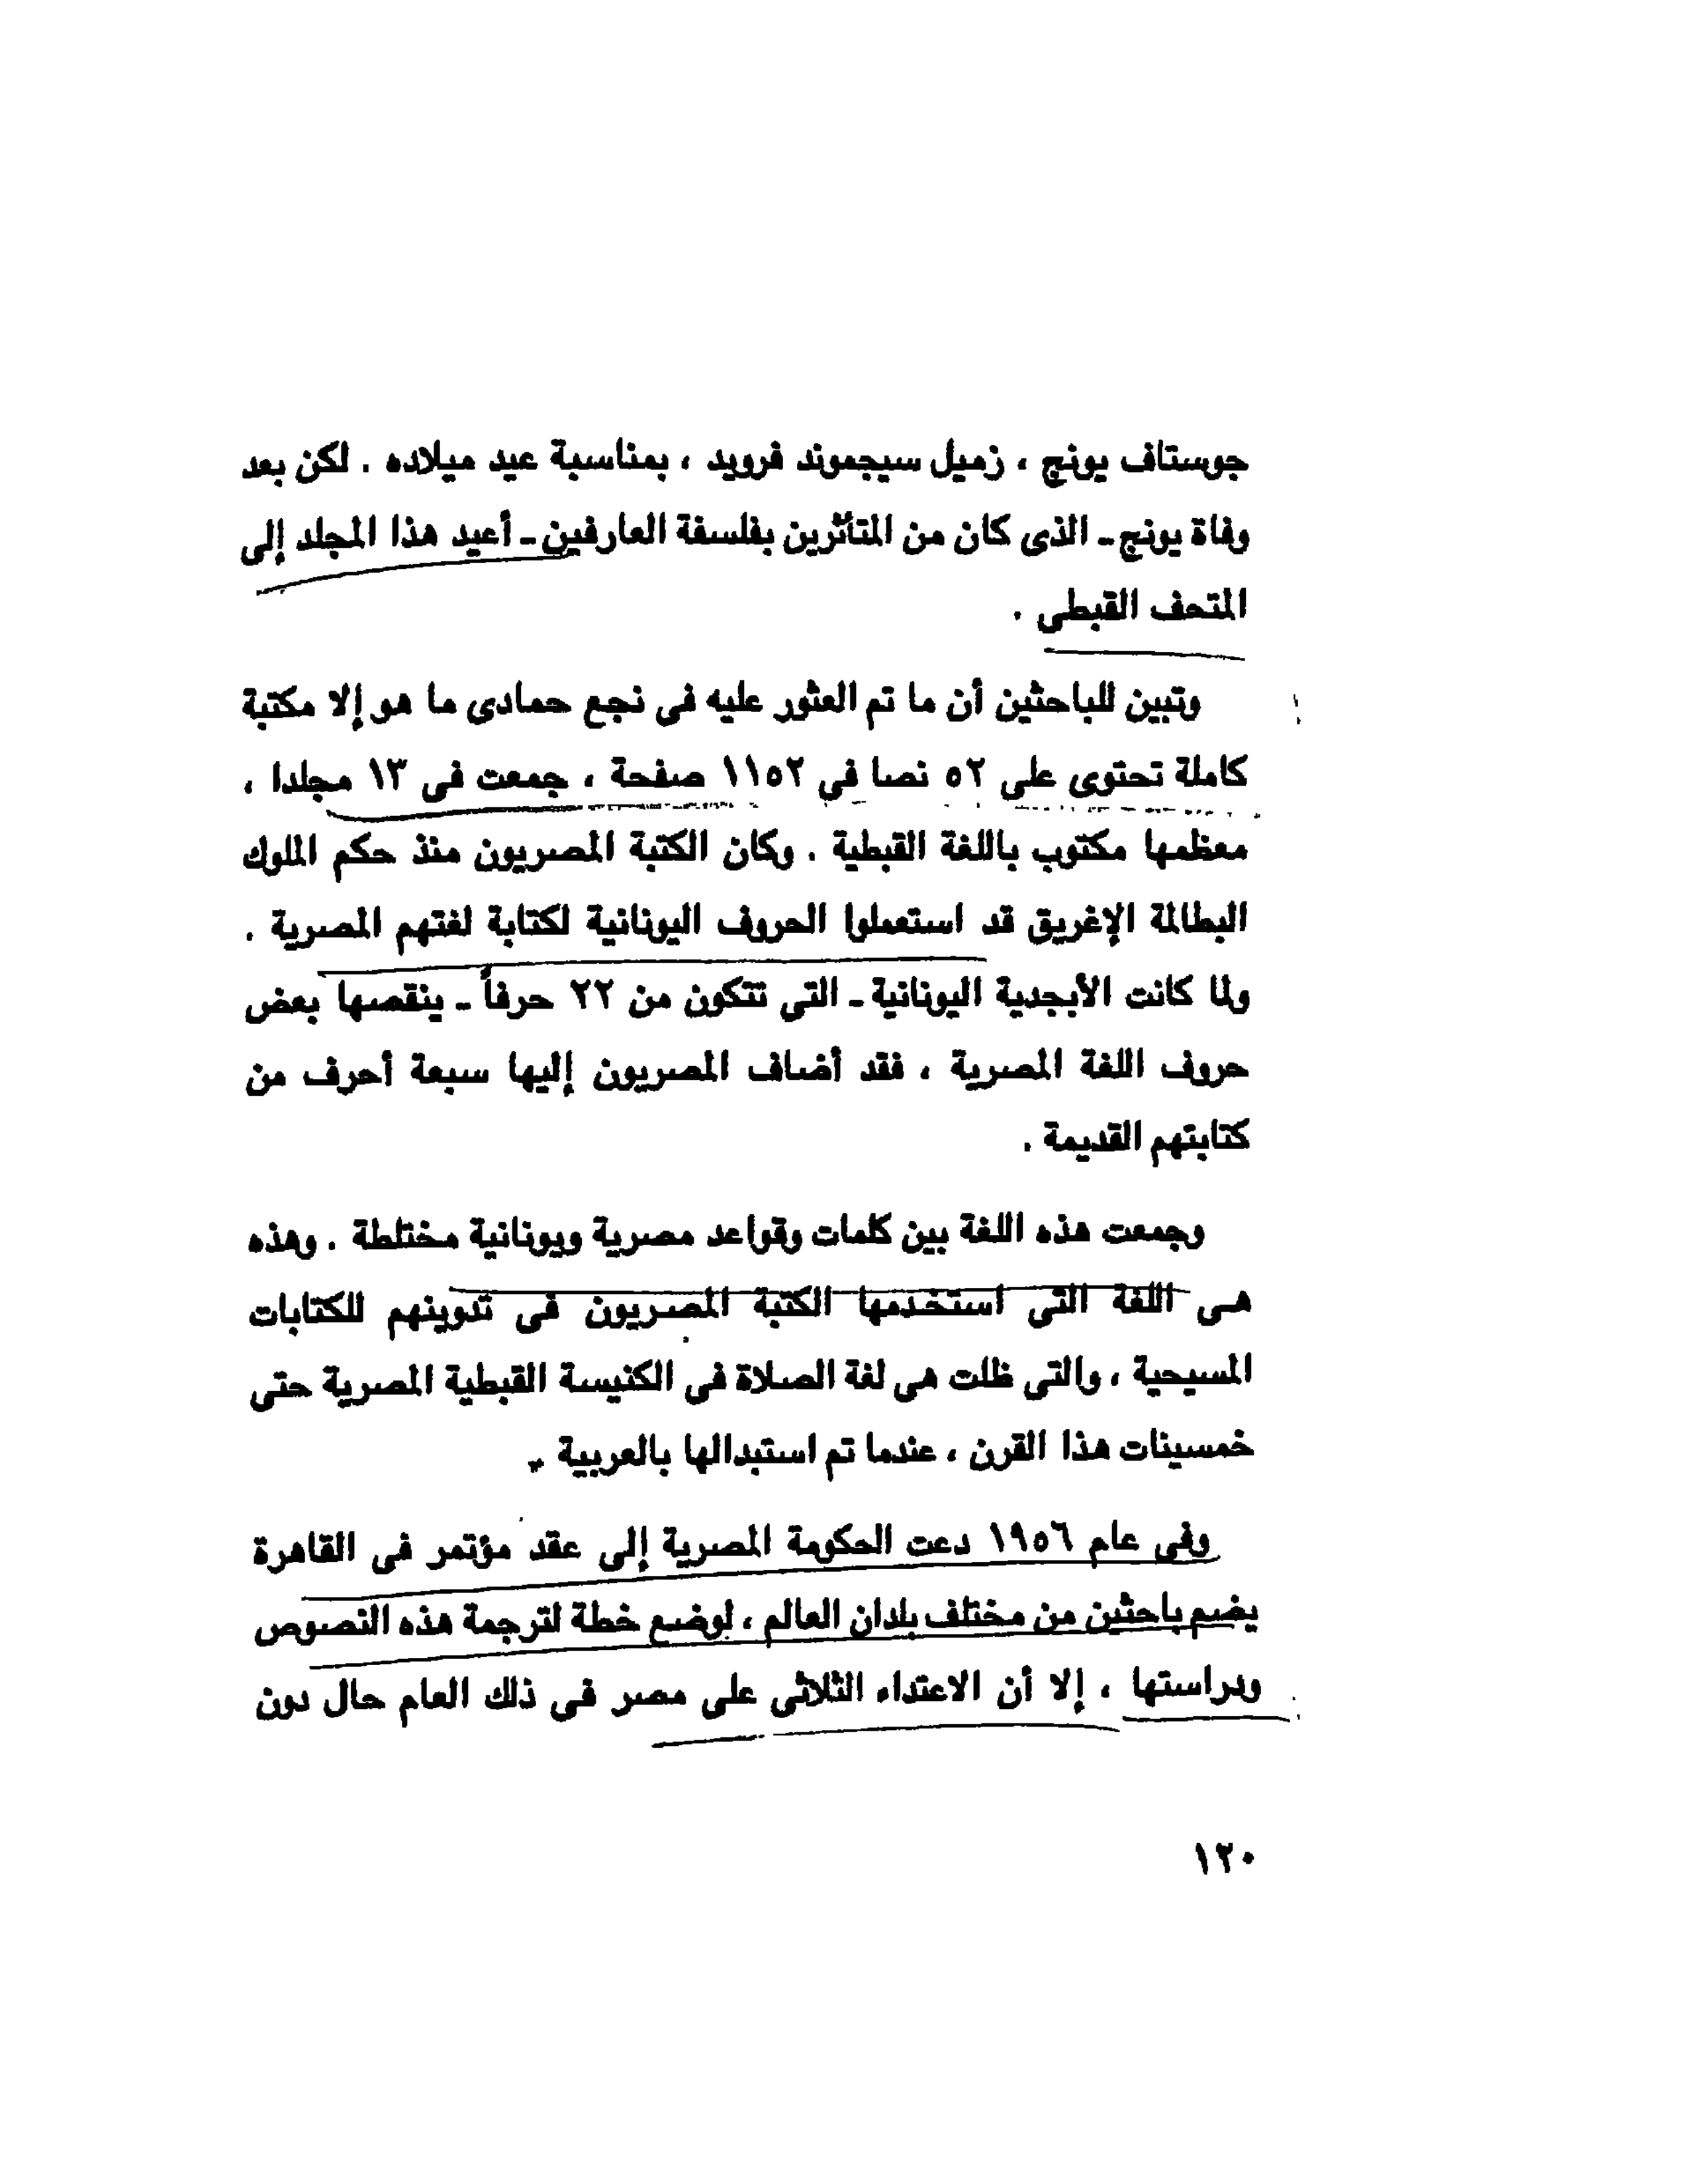 جوستاف يونج ، زميل سيجموند فرويد ، بمناسبة عيد ميلاده . لكن بعد
وفاة يونج ـ الذى كان من المتأثرين بفلسفة العارفين ـ أعيد هذا المجلد إلى
المتحف القبطى .
وتبين للباحثين أن ما تم العثور عليه فى نجع حمادى ما هو إلا مكتبة
كاملة تحتوى على ٥٢ نصا فى ١١٥٢ صفحة ، جمعت فى ١٣ مجلدا ،
معظمها مكتوب باللغة القبطية . وكان الكتبة المصريون منذ حكم الملوك
البطالمة الإغريق قد استعملوا الحروف اليونانية لكتابة لغتهم المصرية .
ولما كانت الأبجدية اليونانية ـ التى تتكون من ٢٢ حرفاً ـ ينقصها بعض
حروف اللغة المصرية ، فقد أضاف المصريون إليها سبعة أحرف من
كتابتهم القديمة .
وجمعت هذه اللغة بين كلمات وقواعد مصرية ويونانية مختلطة . وهذه
هى اللغة التى استخدمها الكتبة المصريون فى تدوينهم للكتابات
المسيحية ، والتى ظلت هى لغة الصلاة فى الكنيسة القبطية المصرية حتى
خمسينات هذا القرن ، عندما تم استبدالها بالعربية .
وفى عام ١٩٥٦ دعت الحكومة المصرية إلى عقد مؤتمر فى القاهرة
يضم باحثين من مختلف بلدان العالم ، لوضع خطة لترجمة هذه النصوص
ودراستها ، إلا أن الاعتداء الثلاثى على مصر فى ذلك العام حال دون
١٢٠